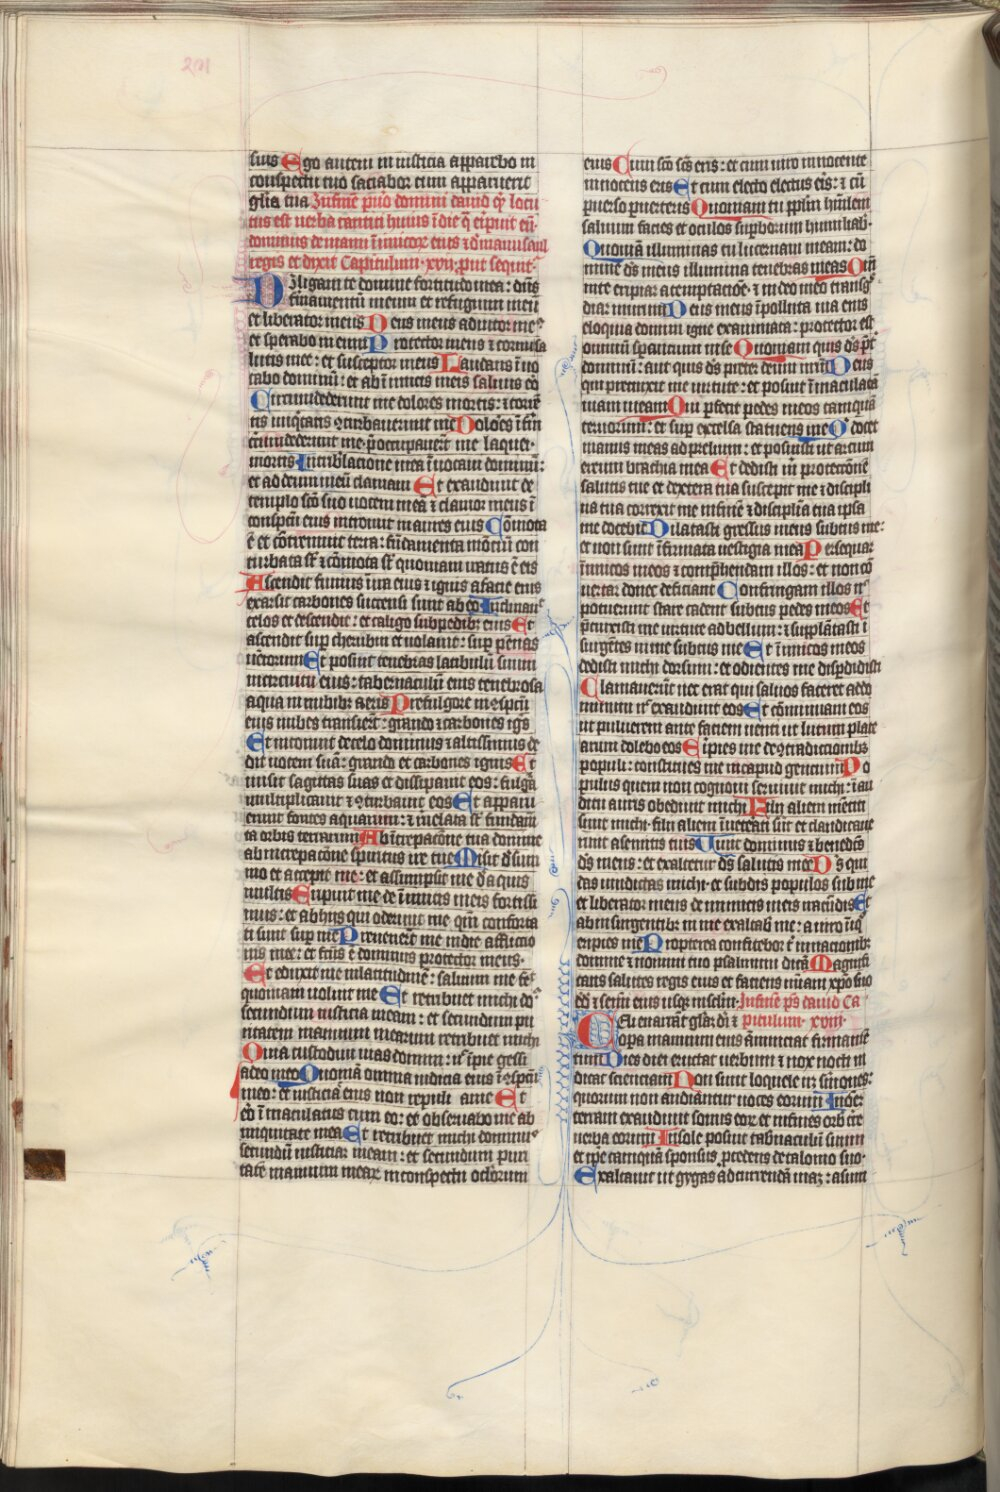 201
suis Ego autem in iusticia apparebo in
conspectu tuo saciabor cum apparuerit
gl̄ia tua In finē puō domini dauid qͥ locu
tus est uerba cantici huius ī die q̄ eripuit eū
dominus de manu īimicoꝝ eius ⁊ d̓ manu saul
regis et dixit Capitulum xvii put sequit̓
Diligam te domine fortitudo mea : dn̄s
firmamentū meum et refugium meū
et liberator meus Deus meus adiutor me⁹
et sperabo in eum Protector meus ⁊ cornu sa
lutis mee : et susceptor meus Laudans īuo
cabo dominū : et ab īimicis meis saluus eo
Circumdederunt me dolores mortis : ⁊ torrē
tis īiqͥtatis ꝯturbauerunt me Doloꝛes īfͥni
cͥrcūdederunt me p̄occupauerūt me laquei
mortis In tribulacione mea īuocaui dominū :
et ad deum meū clamaui Et exaudiuit de
templo scō suo uocem meā ⁊ clamor meus ī
conspectu eius introiuit in aures eius Cōmota
ē et cōtremuit terra : fūdamenta mōtiū con
turbata sͭ ⁊ cōmota sͭ quoniam iratus ē eis
Ascendit fumus ī ira eius ⁊ ignis a facie eius
exarsit carbones succensi sunt ab eo Inclinauͥ
celos et descendit : et caligo sub pedibꝫ eius Et
ascendit sup cherubin et uolauit : sup pēnas
uētorum Et posuit tenebras latibulū suum
in circuitu eius : tabernaculū eius tenebrosa
aqua in nubibꝫ aeris Pre fulgore in ꝯspectu
eius nubes transierūt : grando ⁊ carbones ignis
Et intonuit de celo dominus ⁊ altissimus de
dit uocem suā : grando et carbones ignis Et
misit sagittas suas et dissipauit eos : fulgͣa
multiplicauit ⁊ ꝯturbauit eos Et apparu
erunt fontes aquarum : ⁊ reuelata sͭ fundamē
ta orbis terrarum Ab īcrepacōne tua domine
ab increpacōne spiritus ire tue Misit d̓ sum
mo et accepit me : et assumpsit me d̓ aquis
multis Eripuit me de īimicis meis fortissi
mis : et ab hiis qui oderunt me qm̄ conforta
ti sunt sup me Preuenerūt me in die afflictio
nis mee : et fc̄us ē dominus protector meus
Et eduxit me in latitudinē : saluum me fecͭ
quoniam uoluit me Et retribuet michi do⁹
secundum iusticiā meam : et secundum pu
ritatem manuum mearum retribuet michi
Quia custodiui uias domini : n̄ īpie gessi
a deo meo Quoniā omnia iudicia eius ī ꝯspectu
meo : et iusticiā eius non repuli a me Et
ero īmaculatus cum eo : et obseruabo me ab
iniquitate mea Et retribuet michi dominus
secundū iusticiā meam : et secundum puri
tatē manuum mearꝝ in conspectu oculorum
eius Cum scō scūs eris : et cum uiro innocente
innocens eris Et cum electo electus eris : ⁊ cū
puerso puerteris Quoniam tu pplm̄ humilem
saluum facies et oculos supborum humiliab̓
Quoniā illuminas tu lucernam meam : do
mine ds̄ meus illumina tenebras meas Qm̄
in te eripiar a temptacione : ⁊ in deo meo transgͥ
diar murum Deus meus īpolluta uia eius
eloquia domini igne examinata : protector est
omnium sperantium in se Quoniam quis ds̄ pͭ
dominū : aut quis ds̄ preter deum nrm̄ Deus
qui precinxit me uirtute : et posuit īmaculatā
uiam meam Qui pfecit pedes meos tamquā
ceruorum : et sup excelsa statuens me Qͥ docet
manus meas ad prelium : et posuisti ut arcum
ereum brachia mea Et dedisti m̄ protectionē
salutis tue et dextera tua suscepit me ⁊ discipli
na tua correxit me in finē ⁊ disciplīa tua ipsa
me docebit Dilatasti gressus meos subtus me :
et non sunt īfirmata uestigia mea Persequar
īimicos meos ⁊ comphendam illos : et non cō
uertar donec deficiant Confringam illos nͨ
potuerunt stare cadent subtus pedes meos Et
p̄cinxisti me uirtute ad bellum : ⁊ supplātasti ī
surgētes in me subtus me Et īimicos meos
dedisti michi dorsum : et odientes me disperdidisti
Clamauerūt nec erat qui saluos faceret ad do
minum nͨ exaudiuit eos Et cōminuam eos
ut puluerem ante faciem uenti ut lutum plate
arum delebo eos Eripies me de ꝯtradictionibꝫ
populi : constitues me in capud gencium Po
pulus quem non cognoui seruiuit michi : ī au
ditu auris obediuit michi Filii alieni mētiti
sunt michi filii alieni īueterati sūt et claudicaue
runt a semitis suis Uiuit dominus ⁊ benedcūs
ds̄ meus : et exaltetur ds̄ salutis mee Ds̄ qui
das uindictas michi et subdis populos sub me
et liberator meus de inimicis meis iracūdis Et
ab insurgentibꝫ in me exaltabis me : a uiro īiqͦ
eripies me Propterea confitebor tͥ in nacionibꝫ
domine ⁊ nomini tuo psalmum dicā Magnifi
cans salutes regis eius et faciens mīam xpō suo
dd̄ ⁊ semī eius usqꝫ in sclm̄ In finē ps̄ dauid Ca
Celi enarrāt gla᷒ dī ⁊ pitulum xviii
opa manuum eius ānunciat firmamē
tum Dies diei eructat uerbum ⁊ nox nocti in
dicat scienciam Non sunt loquele nͨ sͥmones :
quorum non audiantur uoces eorum In oēm
terram exauduiit sonus eoꝝ et in fines orbis tͤre
uerba eorum In sole posuit tabnaculū suum
et ipe tamquā sponsus p̄cedens de talomo suo
Exaltauit ut gygas ad currendā uiaꝫ : a sūm